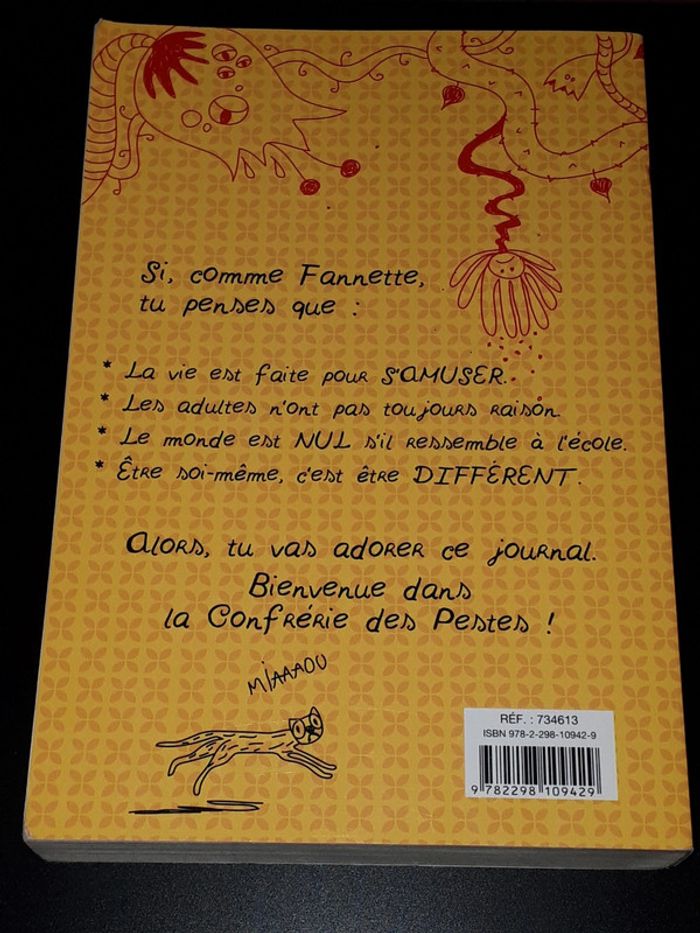 Si, comme Fannette,
tu penses que :
* La vie est faite pour S'AMUSER.
* Les adultes n'ont pas toujours raison.
* Le monde est NUL s'il ressemble à l'école.
* Être soi-même, c'est être DIFFÉRENT.
Alors, tu vas adorer ce journal.
Bienvenue dans
la Confrérie des Pestes !
MIAAAOU
RÉF. : 734613
ISBN 978-2-298-10942-9
9 782298 109429